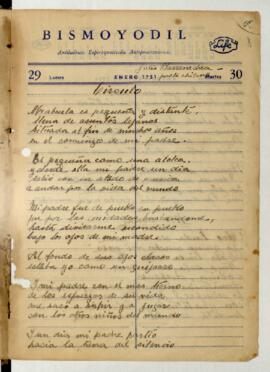 BISMOYODIL
Antiálgico Espasmolítico Antispasmódico
Life
Julio Barrenechea
29 Lunes ENERO 1951 Martes 30
poeta chileno
Círculo
Mi abuela es pequeña y distante,
llena de asuntos lejanos
situada al fin de muchos años
en el comienzo de mi padre.
Es pequeña como una aldea,
y desde ella mi padre un día
salió con su atado de
a andar por la vida del mundo
Mi padre fue de pueblo en pueblo
fue por las ciudades buscándome,
hasta divisarme escondido
bajo los ojos de mi madre.
Al fondo de sus ojos claros
estaba yo como un guijarro
I mi padre con el mar tierno
de los esfuerzos de su vida
me sacó a sufrir y a jugar
con los otros niños del mundo
I un día mi padre partió
hacia la tierra del silencio